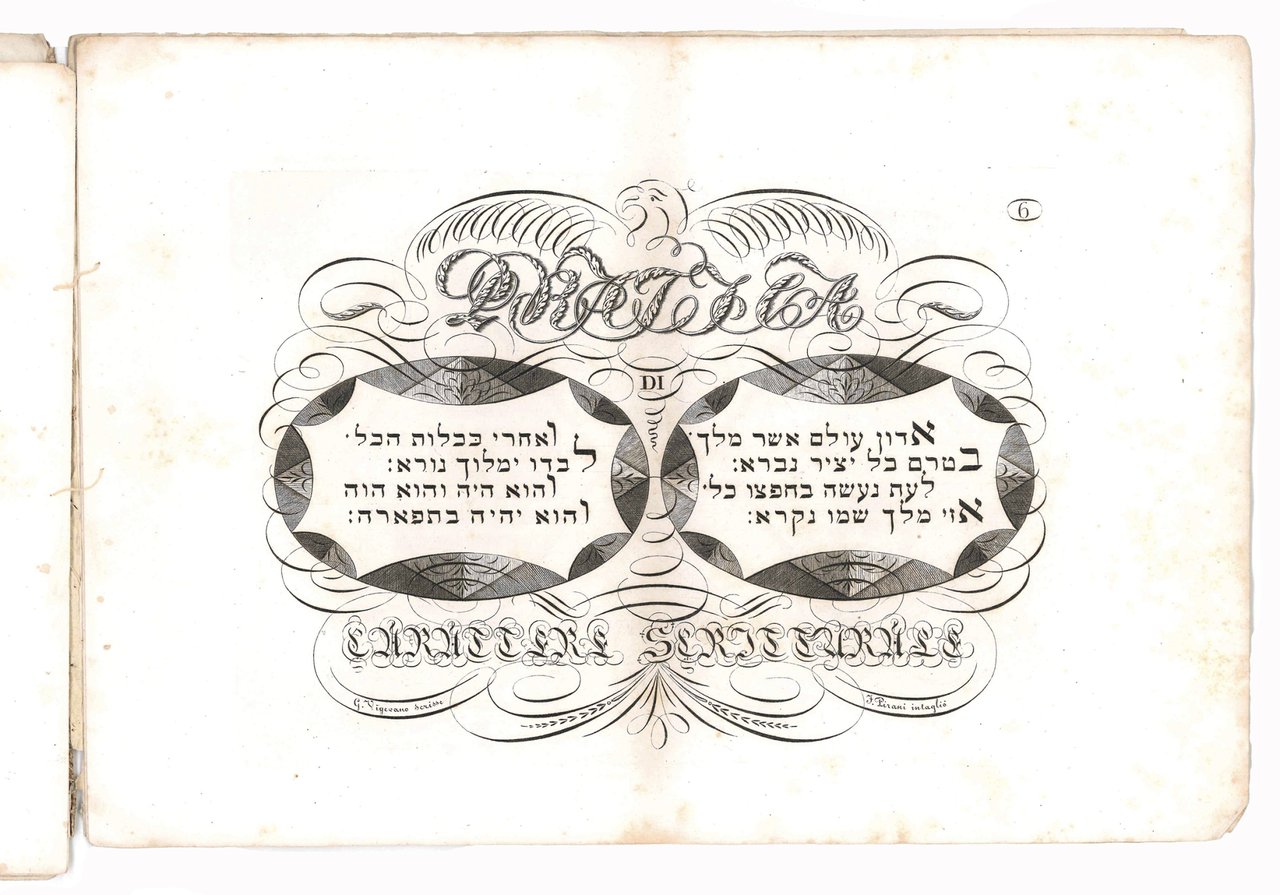 6
PRATICA
DI
אדון עולם אשר מלך·
בטרם כל יציר נברא:
לעת נעשה בחפצו כל·
אזי מלך שמו נקרא:
ואחרי ככלות הכל·
לבדו ימלוך נורא:
והוא היה והוא הוה
והוא יהיה בתפארה:
CARATTERE SCRITTURALE
G. Vigevano scrisse
J. Pirani intagliò